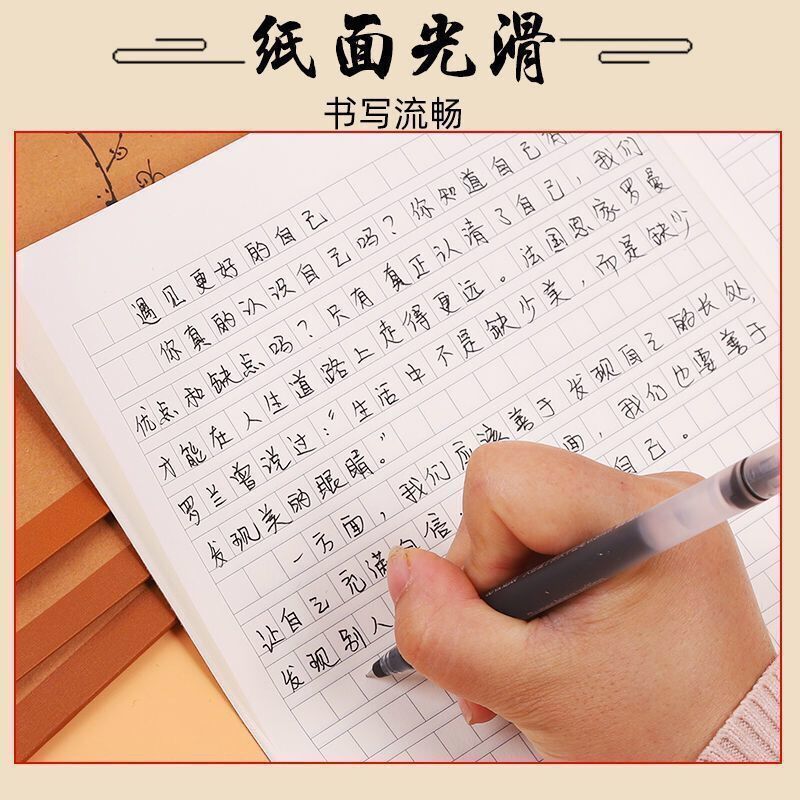 纸面光滑
书写流畅
遇见更好的自己
你真的认识自己吗？你知道自己有
优点和缺点吗？只有真正认清了自己，我们
才能在人生道路上走得更远。法国思家罗曼
罗兰曾说过：“生活中不是缺少美，而是缺少
发现美的眼睛。”
一方面，我们应该善于发现自己的长处，
让自己充满自信 面，我们也要善于
发现别人 自己。